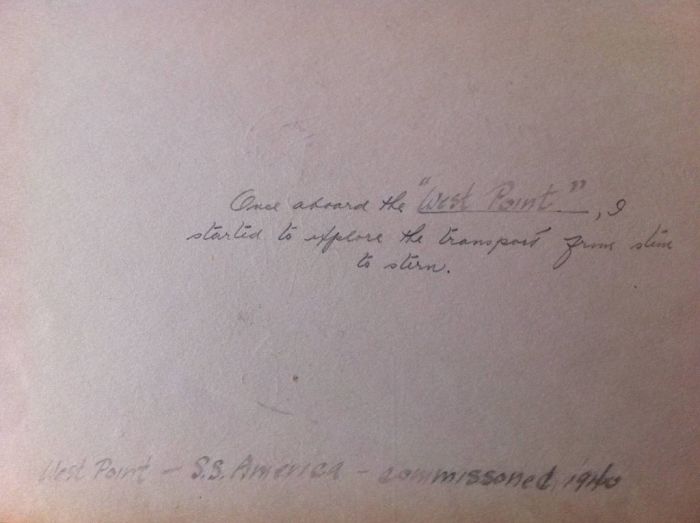 Once aboard the "West Point", I
started to explore the transport from stem
to stern.
West Point - S.S. America - commissoned 1940